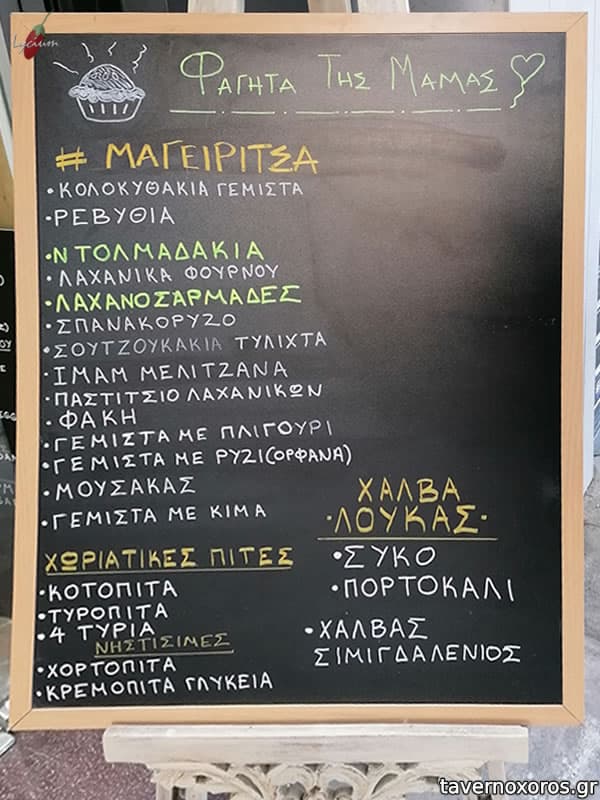 Lycium
ΦΑΓΗΤΑ ΤΗΣ ΜΑΜΑΣ
# ΜΑΓΕΙΡΙΤΣΑ
•ΚΟΛΟΚΥΘΑΚΙΑ ΓΕΜΙΣΤΑ
•ΡΕΒΥΘΙΑ
•ΝΤΟΛΜΑΔΑΚΙΑ
•ΛΑΧΑΝΙΚΑ ΦΟΥΡΝΟΥ
•ΛΑΧΑΝΟΣΑΡΜΑΔΕΣ
•ΣΠΑΝΑΚΟΡΥΖΟ
•ΣΟΥΤΖΟΥΚΑΚΙΑ ΤΥΛΙΧΤΑ
•ΙΜΑΜ ΜΕΛΙΤΖΑΝΑ
•ΠΑΣΤΙΤΣΙΟ ΛΑΧΑΝΙΚΩΝ
•ΦΑΚΗ
•ΓΕΜΙΣΤΑ ΜΕ ΠΛΙΓΟΥΡΙ
•ΓΕΜΙΣΤΑ ΜΕ ΡΥΖΙ(ΟΡΦΑΝΑ)
•ΜΟΥΣΑΚΑΣ
•ΓΕΜΙΣΤΑ ΜΕ ΚΙΜΑ
ΧΩΡΙΑΤΙΚΕΣ ΠΙΤΕΣ
•ΚΟΤΟΠΙΤΑ
•ΤΥΡΟΠΙΤΑ
•4 ΤΥΡΙΑ
ΝΗΣΤΙΣΙΜΕΣ
•ΧΟΡΤΟΠΙΤΑ
•ΚΡΕΜΟΠΙΤΑ ΓΛΥΚΕΙΑ
ΧΑΛΒΑ
•ΛΟΥΚΑΣ•
•ΣΥΚΟ
•ΠΟΡΤΟΚΑΛΙ
•ΧΑΛΒΑΣ
ΣΙΜΙΓΔΑΛΕΝΙΟΣ
tavernoxoros.gr